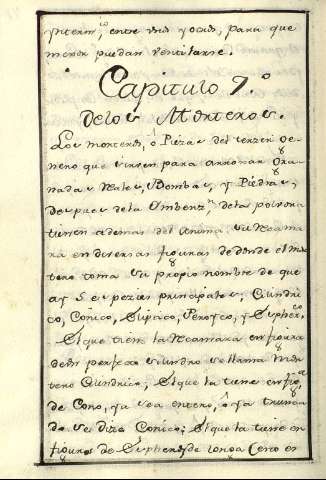 entre unos y otros, para que
mexor puedan ventilarse.
Capitulo 7.º
de los Morteros.
Los morteros, ó Piezas del tercer Ge-
nero que sirven para arrojar Gra-
nadas Bombas, y Piedras,
despues de la de la
tienen ademas del Anima su Recama-
ra en diversas figuras de donde el mor-
tero toma su propio nombre de que
ay 5 especies principales; Cilindri-
co, Conico, y
El que tiene la Recamara en figura
de un perfecto cilindro se llama Mor-
tero Cilindrico; El que la tiene en fig.ª
de Cono, ya sea entero, ô ya trunca-
do se dize Conico; El que la tiene en
figura de